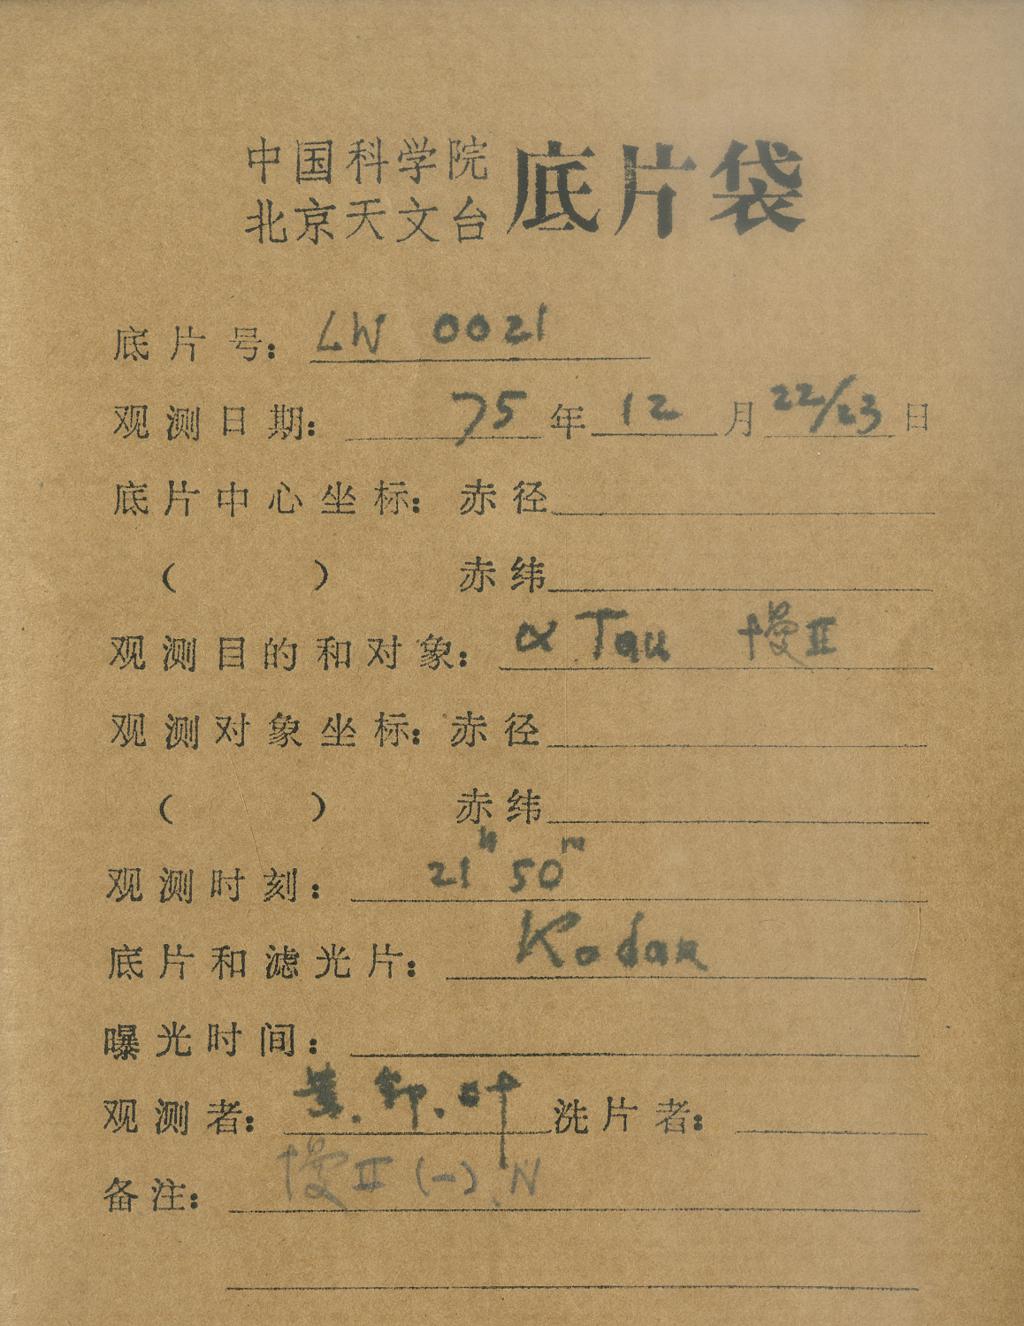 中国科学院
北京天文台 底片袋
底片号: LW 0021
观测日期: 75年12月22/23日
底片中心坐标: 赤径
( ) 赤纬
观测目的和对象: α Tau 慢II
观测对象坐标: 赤径
( ) 赤纬
观测时刻: 21h 50m
底片和滤光片: Kodak
曝光时间:
观测者: 黄.邹.叶 洗片者:
备注: 慢II(一).N